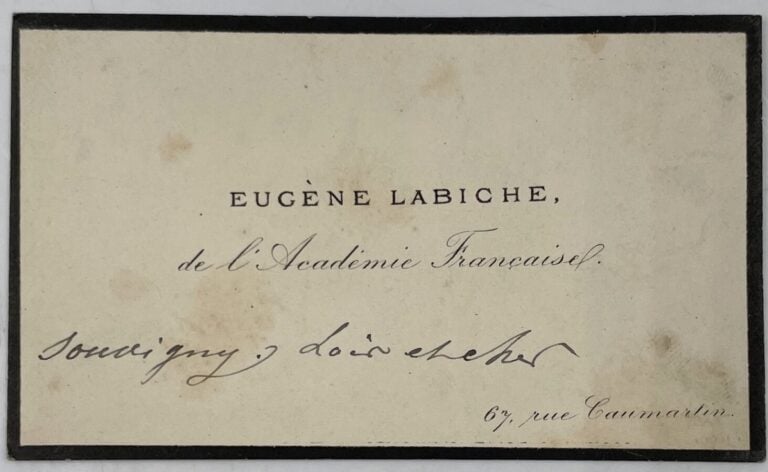 EUGÈNE LABICHE,
de l'Académie Française.
Souvigny. Loir et cher
67, rue Caumartin.